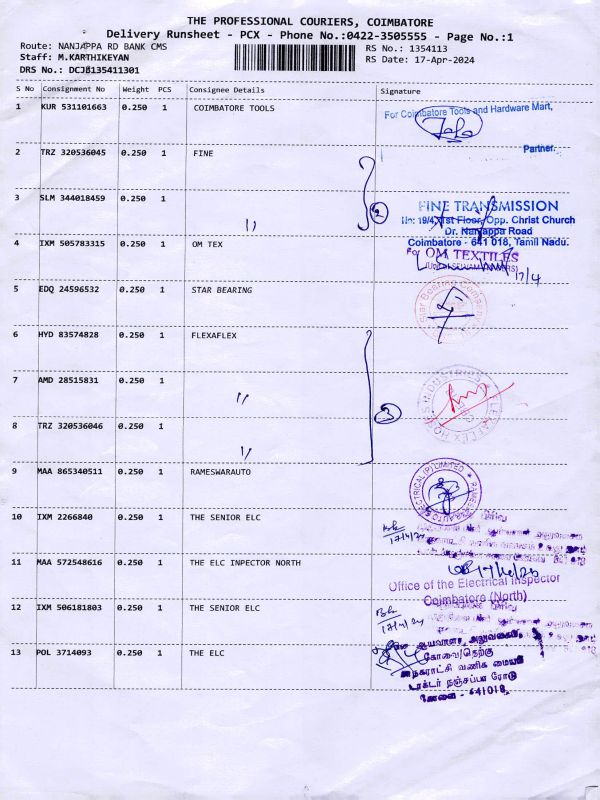 THE PROFESSIONAL COURIERS, COIMBATORE
Delivery Runsheet - PCX - Phone No.:0422-3505555 - Page No.:1
Route: NANJAPPA RD BANK CMS RS No.: 1354113
Staff: M.KARTHIKEYAN RS Date: 17-Apr-2024
DRS No.: DCJB135411301
S No Consignment No Weight PCS Consignee Details Signature
1 KUR 531101663 0.250 1 COIMBATORE TOOLS
For Coimbatore Tools and Hardware Mart,
Partner.
2 TRZ 320536045 0.250 1 FINE
3 SLM 344018459 0.250 1 〃 2
FINE TRANSMISSION
No: 19/4, 1st Floor, Opp. Christ Church
Dr. Nanjappa Road
Coimbatore - 641 018, Tamil Nadu.
4 IXM 505783315 0.250 1 OM TEX
For OM TEXTILES
17/4
5 EDQ 24596532 0.250 1 STAR BEARING
6 HYD 83574828 0.250 1 FLEXAFLEX
7 AMD 28515831 0.250 1 〃 3
8 TRZ 320536046 0.250 1 〃
9 MAA 865340511 0.250 1 RAMESWARAUTO
RAMESWARAUTO ELECTRICAL (P) LIMITED
10 IXM 2266840 0.250 1 THE SENIOR ELC
17/4/24
11 MAA 572548616 0.250 1 THE ELC INPECTOR NORTH
Office of the Electrical Inspector
Coimbatore (North)
12 IXM 506181803 0.250 1 THE SENIOR ELC
17/4/24
13 POL 3714093 0.250 1 THE ELC
கோவை/தெற்கு
மாநகராட்சி வணிக மையம்
டாக்டர் நஞ்சப்பா ரோடு
கோவை - 641018.